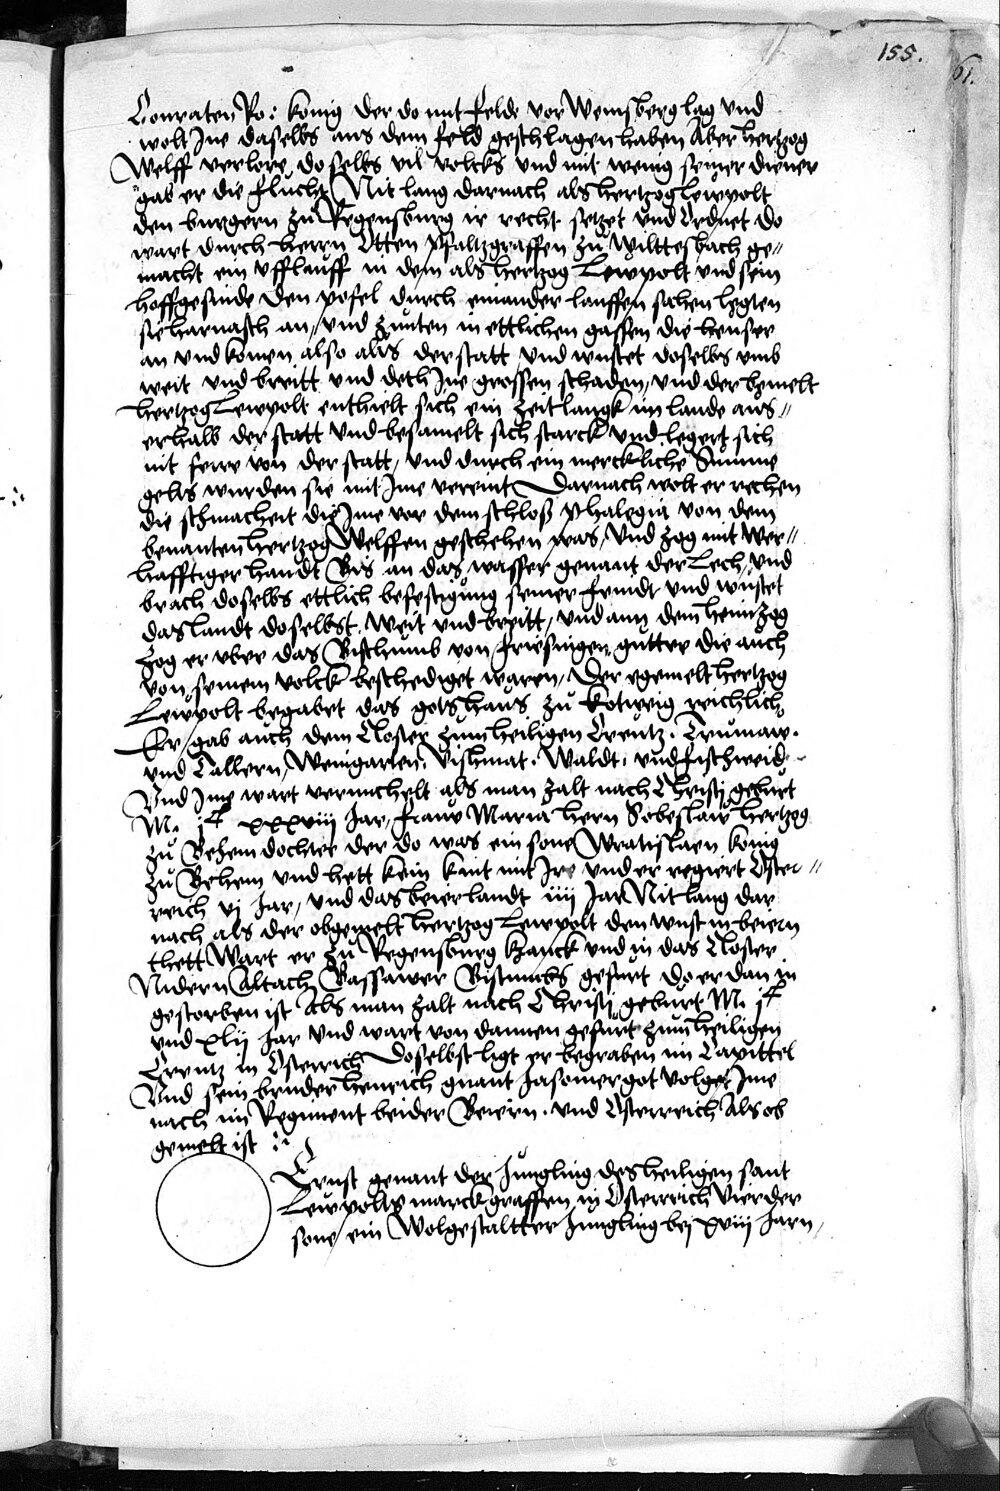 155.
61.
Conraten Ro: konig der do mit felde vor Weinsberg lag vnd
wolt Ine daselbs aus dem feld geschlagen haben Aber hertzog
Welff verlore doselbs vil volcks vnd mit wenig seiner diener
gab er die flucht Nit lang darnach als hertzog Lewpolt
den burgern zu Regensburg ir recht setzet vnd Ordnet do
wart durch herrn Otten pfaltzgraffen zu Wittesbach ge//
macht ein Vfflauff in dem als hertzog Lewpolt vnd sein
hoffgesinde den pofel durch einander lauffen sahen legten
sie harnasch an, vnd zunten in ettlichen gassen die heuser
an vnd komen also aus der statt vnd wustet doselbs vmb
weit vnd breitt vnd deth Ine grossen schaden, vnd der bemelt
hertzog Lewpolt enthielt sich ein zeitlangk im lande aus//
erhalb der statt vnd besamelt sich starck vnd legert sich
nit ferre von der statt, vnd durch ein merckliche Summe
gelts wurden sie mit Ime vereint Darnach wolt er rechen
die schmacheit die Ime vor dem schloß phalegia von dem
benanten hertzog Welffen geschehen was, vnd zog mit wer//
hafftiger handt Bis an das wasser genant der Lech, vnd
brach doselbs ettlich befestigung seiner feindt vnd wustet
das landt doselbst weit vnd breitt, vnd ann dem heimzog
zog er vber das Bisthumb von Friesingen gutter die auch
von seinem volck beschediget waren, Der egemelt hertzog
Lewpolt begabet das gotshaus zu Kotweig reichlich
Er gab auch dem Closter zum heiligen Creutz. Trumaw.
vnd Tallern, Weingarten. Vishmat. Waldt. vnd fischweid
Vnd Ime wart vermehelt als man zalt nach Christi geburt
M. jc xxxviij Jar, fraw Maria hern Sobeslaw hertzog
zu Behem dochter der do was ein sone Wratislaen konig
zu Behem vnd hett kein kint mit Ire vnd er regiert Oster//
reich vj Jar, vnd das beierlandt iiij Jar Nit lang dar
nach als der obgemelt hertzog Lewpolt den wust in beiern
thett Wart er zu Regensburg kranck vnd in das Closter
Nidern Altach Bassawer Bistumbs gefurt do er dan in
gestorben ist Als man zalt nach Christi geburt M. jc
vnd xlij Jar vnd wart von dannen gefurt zum heiligen
Creutz in Osterrich Doselbst ligt er begraben im Capittel
Vnd sein bruder henrich gnant Jasomergot volget Ime
nach im Regiment beider Beiern. vnd Osterreich Als ob
gemelt ist
Ernst genant der Jungling des heiligen sant
Lewpolts marckgraffen in Osterrich vierder
sone, ein Wolgestaltter Jungling bej xviij Jarn,